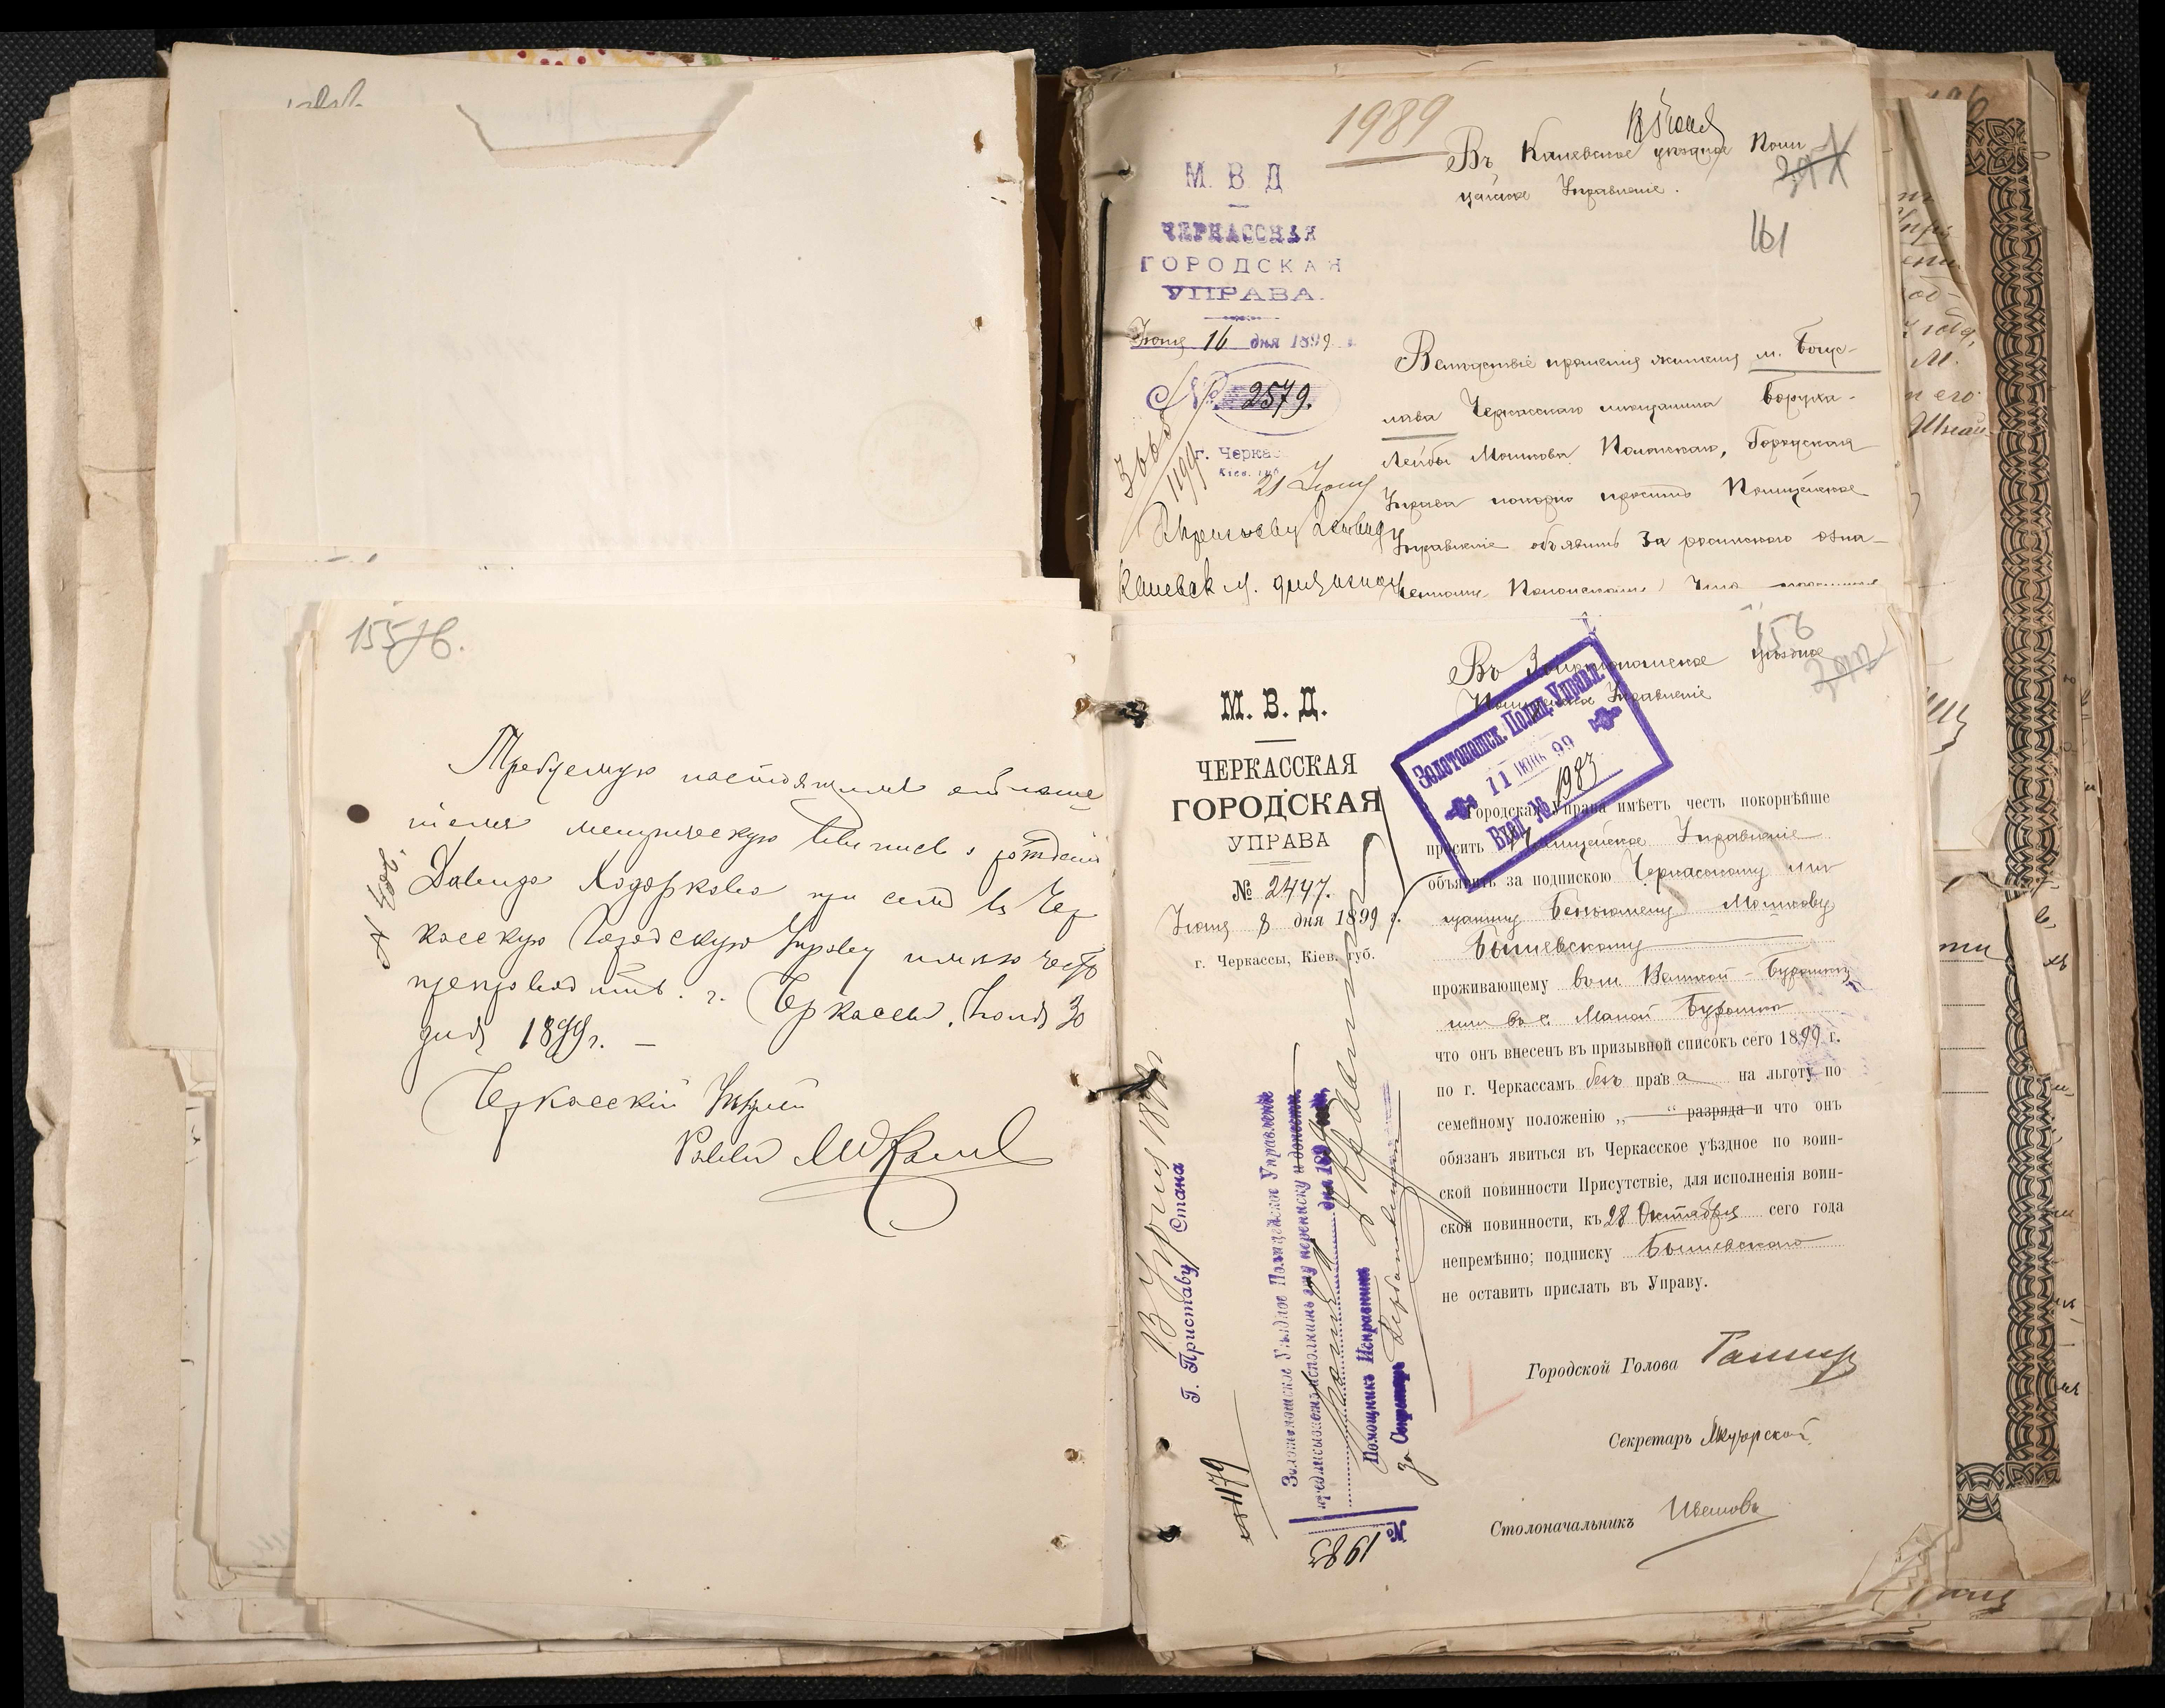 155об.
Требуемую настоящимъ отноше
ніемъ метрическую выпись о рожденіи
Давида Ходоркова при семъ въ Чер
касскую Городскую Управу имѣю честь
препроводить. г. Черкассы, Іюня 30
дня 1899 г. —
Черкасскій
Раввинъ
№ 303.
1989
Въ Каневское уѣздное Поли
цейское Управленіе.
161
М. В. Д
ЧЕРКАССКАЯ
ГОРОДСКАЯ
УПРАВА.
Іюня 16 дня 1899
№ 2579.
г. Черкас
Кіев. губ.
21 Іюня
Вслѣдствіе прошенія жителя м. Богус-
лава Черкасскаго мѣщанина Боруха-
Лейбы Мошкова Полонскаго, Городская
Управа покорно проситъ Полицейское
Управленіе объявить за роспискою озна-
ченному Полонскому
156
Въ Золотоношское уѣздное
Полицейское Управленіе
Золотоношск. Полиц. Управл.
11 ІЮНЬ 99
Вход. № 1983
М. В. Д.
ЧЕРКАССКАЯ
ГОРОДСКАЯ
УПРАВА
№ 2447.
Іюня 8 дня 1899 г.
г. Черкассы, Кіев. губ.
Городская Управа имѣетъ честь покорнѣйше
просить Полицейское Управленіе
объявить за подпискою Черкасскому мѣ
щанину Беньюмену Мошкову
Бышевскому
проживающему въ м. Великой-Буромкѣ
или въ с. Малой Буромкѣ
что онъ внесенъ въ призывной списокъ сего 1899 г.
по г. Черкассамъ безъ права на льготу по
семейному положенію „—“ разряда и что онъ
обязанъ явиться въ Черкасское уѣздное по воин-
ской повинности Присутствіе, для исполненія воин-
ской повинности, къ 28 Октября сего года
непремѣнно; подписку Бышевскаго
не оставить прислать въ Управу.
Городской Голова
Секретарь
Столоначальникъ
Г. Приставу Стана
Золотоношское Уѣздное Полицейское Управленіе
предписываетъ исполнить эту переписку и донести.
дня 189
Помощникъ Исправника
за Секретаря
№ 1983